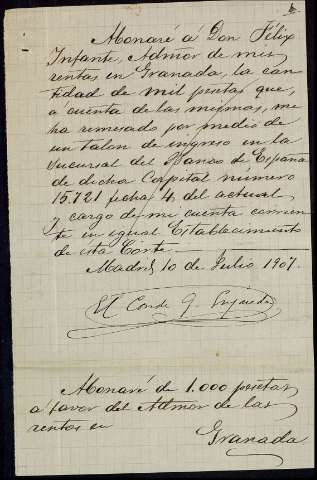 Abonaré á Don Félix
Infante, Admor de mis
rentas en Granada, la can-
tidad de mil pesetas que,
á cuenta de las mismas, me
ha remesado por medio de
un talon de ingreso en la
Sucursal del Banco de España
de dicha Capital número
15.721 fecha 4 del actual
y cargo de mi cuenta corrien-
te en igual Establecimiento
de ésta Corte.
Madrid, 10 de Julio 1907.
El Conde
Abonaré de 1.000 pesetas
á favor del Admor de las
rentas en
Granada